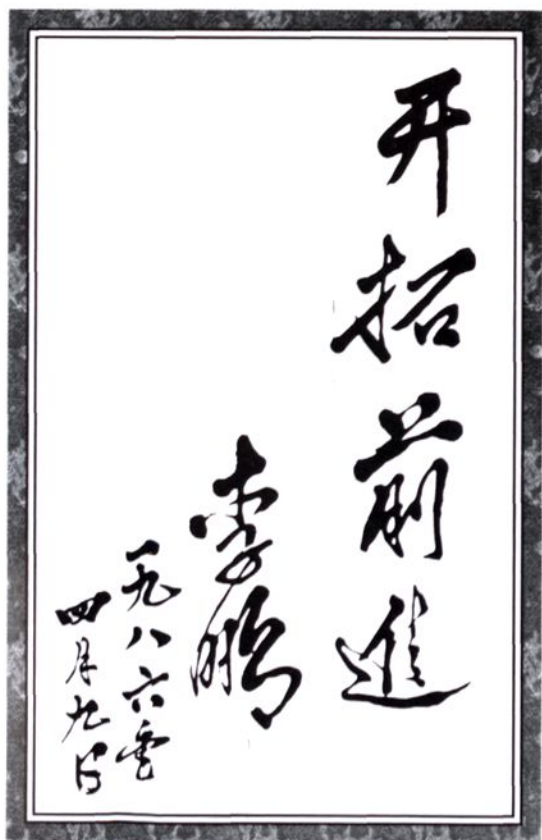 开拓前進
李鹏
一九八六年
四月九日